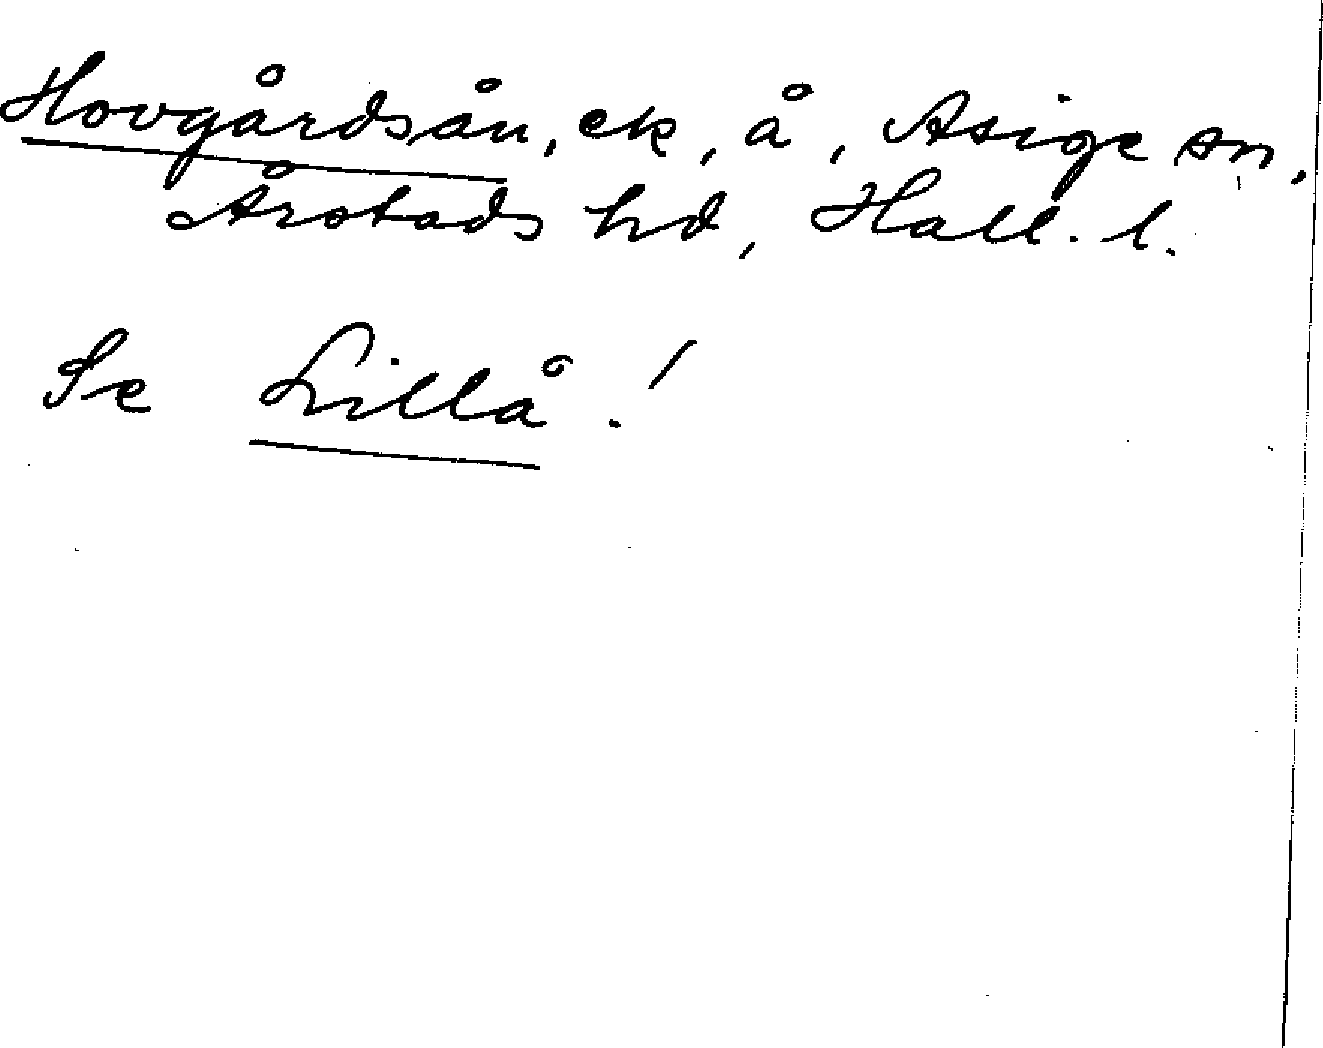 Hovgårdsån, ek, å, Asige sn,
Årstads hd, Hall. l.
Se Lillå!